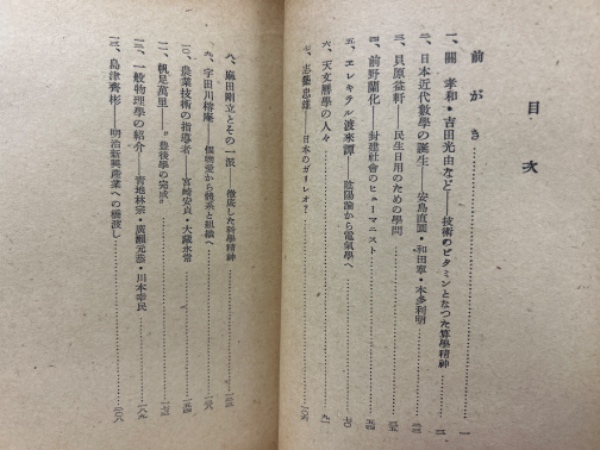 目次
前がき 一
一、關孝和・吉田光由など——技術のビタミンとなつた算學精神 三
二、日本近代數學の誕生——安島直圓・和田寧・本多利明
三、貝原益軒——民生日用のための學問
四、前野蘭化——封建社會のヒューマニスト 五四
五、エレキテル渡來譚——陰陽論から電氣學へ 七〇
六、天文曆學の人々 九一
七、志築忠雄——日本のガリレオ? 一〇六
八、麻田剛立とその一派——徹底した科學精神
九、宇田川榕庵——個物愛から體系と組織へ
一〇、農業技術の指導者——宮崎安貞・大藏永常 一五四
一一、帆足萬里——〝豊後學の完成〟
一二、一般物理學の紹介——靑地林宗・廣瀨元恭・川本幸民 一八九
一三、島津齊彬——明治新興產業への橋渡し 二〇八